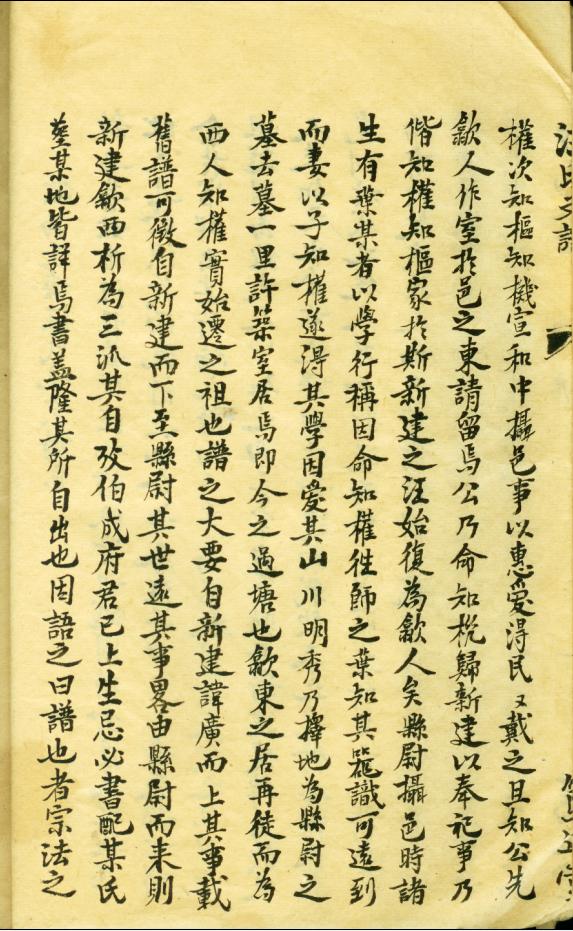 權次知樞知機宣和中攝邑事以惠愛得民民戴之且知公先
歙人作室於邑之東請留焉公乃命知梲歸新建以奉祀事乃
偕知權知樞家於斯新建之汪始復為歙人矣縣尉攝邑時諸
生有葉某者以學行稱因命知權徃師之葉知其器識可遠到
而妻以子知權遂得其學因愛其山川明秀乃擇地為縣尉之
墓去墓一里許築室居焉即今之過塘也歙東之居再徙而為
西人知權實始遷之祖也譜之大要自新建諱廣而上其事載
舊譜可徵自新建而下至縣尉其世遠其事畧由縣尉而来則
新建歙西析為三派其自攷伯成府君已上生忌必書配某氏
塟某地皆詳焉書盖隆其所自出也因語之曰譜也者宗法之